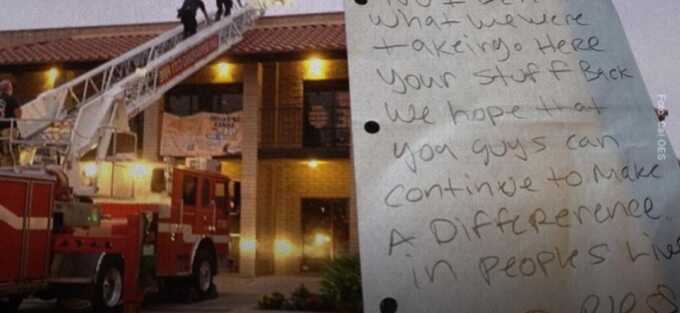 what we were
takeing. Here
your stuff Back
We hope that
you guys can
continue to make
A Differerence.
in peoples Live